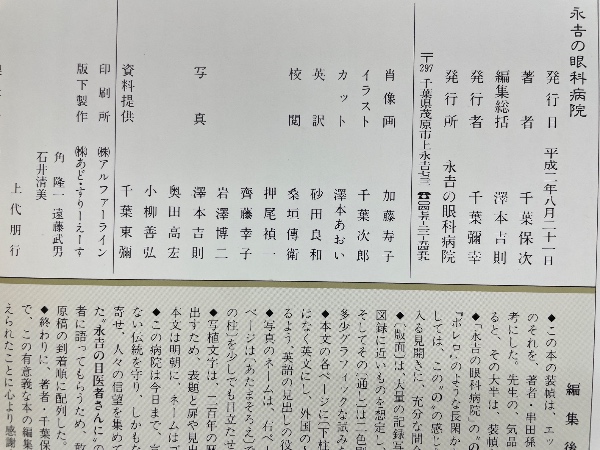 永吉の眼科病院
発行日 平成二年八月二十一日
著者 千葉保次
編集総括 澤本吉則
発行者 千葉彌幸
発行所 永吉の眼科病院
〒297 千葉県茂原市上永吉
肖像画 加藤寿子
イラスト 千葉次郎
カット 澤本あおい
英訳 砂田良和
校閲 桑垣傳衛
押尾禎一
齊藤幸子
岩澤博二
写真 澤本吉則
奥田高宏
小柳善弘
資料提供 千葉東彌
印刷所 ㈱アルファーライン
版下製作 ㈱あど・すりーえーす
角隆一 遠藤武男
石井清美
上代朋行
編集後
◆この本の装幀は、エッ
のそれを、著者・串田孫
考にした。先生の、気品
ると、その大半は、装幀
◆「永吉の眼科病院」の
『ボレロ』のような長閑か
しては、この"の"の感じ
入る見開きに、充分な間合
◆〈版面〉は、大量の記録写
図録に近いものを想定し、
そしてその〈通し〉は二色刷
多少グラフィックな試みを
◆本文の各ページに〈下柱
はなく英文にし、外国の人
るよう、英語の見出しの役
◆写真のネームは、右ペー
ページは〈あたまそろえ〉で
の柱〉を少しでも目立たせ
◆写植文字は、二百年の歴
出すため、表題と扉や見出
本文は明朝に、ネームはゴ
◆この病院は今日まで、宣
ない伝統を守り、しかもな
寄せ、人々の信望を集めて
た"永吉の目医者さんに"の
者に語ってもらうため、敢
原稿の到着順に配列した。
◆終わりに、著者・千葉保
で、この有意義な本の編集
えられたことに心より感謝